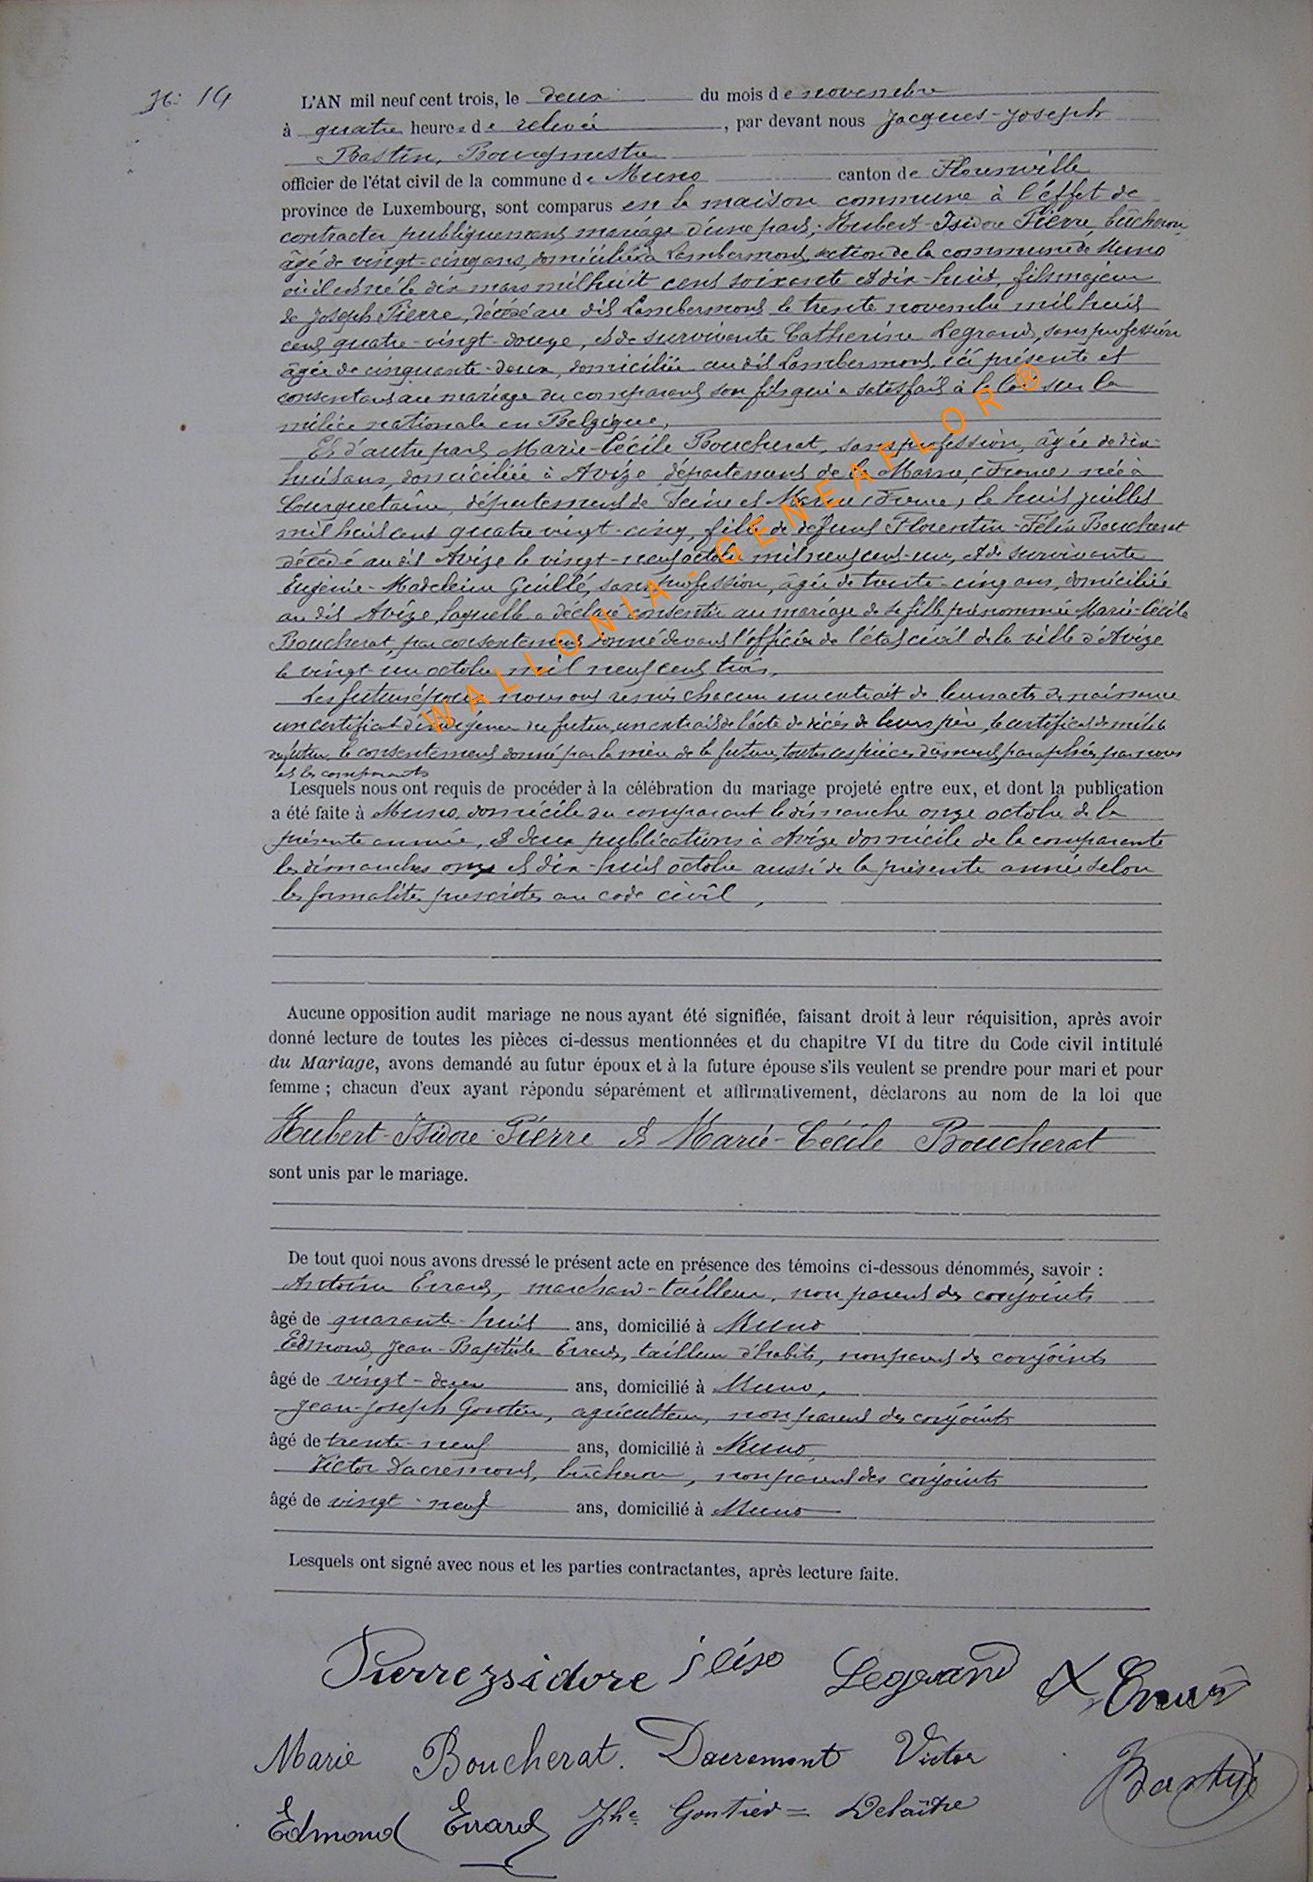 N° 14
L'AN mil neuf cent trois, le deux du mois de novembre
à quatre heures de relevée, par devant nous Jacques-Joseph
Bastin, Bourgmestre
officier de l'état civil de la commune de Muno canton de Florenville
province de Luxembourg, sont comparus en la maison commune à l'effet de
contracter publiquement mariage d'une part, Hubert-Isidore Pierre, bûcheron,
âgé de vingt-cinq ans, domicilié à Lambermont, section de la commune de Muno
où il est né le dix mars mil huit cent soixante et dix-huit, fils majeur
de Joseph Pierre, décédé au dit Lambermont le trente novembre mil huit
cent quatre-vingt-douze, et de survivante Catherine Legrand, sans profession
âgée de cinquante-deux, domiciliée au dit Lambermont, ici présente et
consentant au mariage du comparant son fils qui a satisfait à la loi sur la
milice nationale en Belgique,
Et d'autre part Marie-Cécile Boucherat, sans profession, âgée de dix-
huit ans, domiciliée à Avize département de la Marne, (France) née à
Courquetaine, département de Seine et Marne (France) le huit juillet
mil huit cent quatre vingt-cinq, fille de défunt Florentin-Félix Boucherat
décédé au dit Avize le vingt-neuf octobre mil neuf cent-un, et de survivante
Eugénie-Madeleine Guillé, sans profession, âgée de trente-cinq ans, domiciliée
au dit Avize, laquelle a déclaré consentir au mariage de sa fille prénommée Marie-Cécile
Boucherat, par consentement donné devant l'officier de l'état civil de la ville d'Avize
le vingt-un octobre mil neuf cent trois.
Les futurs époux nous ont remis chacun un extrait de leurs actes de naissance
un certificat d'indigence du futur, un extrait de l'acte de décès de leurs père, le certificat de milice
du futur, le consentement donné par la mère de la future, toutes ces pièces dûment paraphées par nous
et les comparants
Lesquels nous ont requis de procéder à la célébration du mariage projeté entre eux, et dont la publication
a été faite à Muno, domicile du comparant le dimanche onze octobre de la
présente année, et deux publications à Avize domicile de la comparante
les dimanches onze et dix-huit octobre aussi de la présente année selon
les formalités prescrites au code civil,
Aucune opposition audit mariage ne nous ayant été signifiée, faisant droit à leur réquisition, après avoir
donné lecture de toutes les pièces ci-dessus mentionnées et du chapitre VI du titre du Code civil intitulé
du Mariage, avons demandé au futur époux et à la future épouse s'ils veulent se prendre pour mari et pour
femme ; chacun d'eux ayant répondu séparément et affirmativement, déclarons au nom de la loi que
Hubert-Isidore Pierre et Marie-Cécile Boucherat
sont unis par le mariage.
De tout quoi nous avons dressé le présent acte en présence des témoins ci-dessous dénommés, savoir :
Antoine Errard, marchand-tailleur, non parent des conjoints
âgé de quarante-huit ans, domicilié à Muno
Edmond, Jean-Baptiste Errard, tailleur d'habits, non parent des conjoints
âgé de vingt-deux ans, domicilié à Muno,
Jean-Joseph Gontier, agriculteur, non parent des conjoints
âgé de trente-neuf ans, domicilié à Muno,
Victor Dacremont, bûcheron, non parent des conjoints
âgé de vingt-neuf ans, domicilié à Muno
Lesquels ont signé avec nous et les parties contractantes, après lecture faite.
Pierre Isidore Legrand A. Errard
Marie Boucherat. Dacremont Victor
Edmond Errard Jhe Gontier = Delaître
WALLONIA-GENEAFLOR®